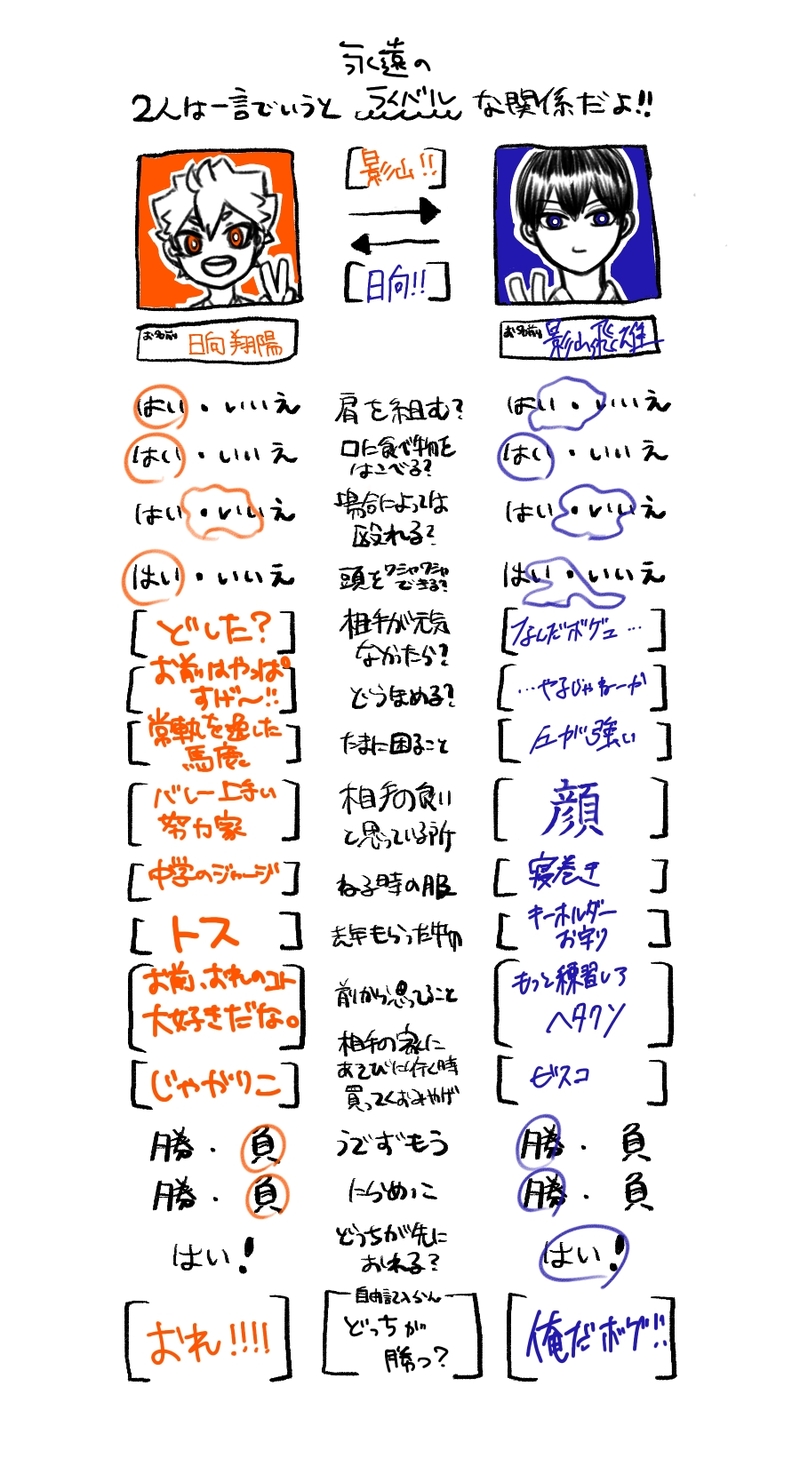 永遠の
2人は一言でいうと ライバル な関係だよ!!
影山!!
日向!!
お名前 日向 翔陽
お名前 影山飛雄
はい・いいえ 肩を組む? はい・いいえ
はい・いいえ 口に食べ物を はい・いいえ
はこべる?
はい・いいえ 場合によっては はい・いいえ
殴れる?
はい・いいえ 頭をワシャワシャ はい・いいえ
できる?
どした? 相手が元気 なんだボゲェ…
なかったら?
お前はやっぱ どうほめる? …やるじゃねーか
すげ〜!!
常軌を逸した たまに困ること 圧が強い
馬鹿
バレー上手い 相手の良い 顔
努力家 と思っている所
中学のジャージ ねる時の服 寝巻き
トス 去年もらった物 キーホルダー
お守り
お前、おれのコト 前から思ってること もっと練習しろ
大好きだな。 ヘタクソ
相手の家に
じゃがりこ あそびに行く時 ビスコ
買ってくおみやげ
勝・負 うでずもう 勝・負
勝・負 にらめっこ 勝・負
はい! どっちが先に はい!
おれる?
自由記入らん
おれ!!!! どっちが 俺だボゲ!!
勝つ?